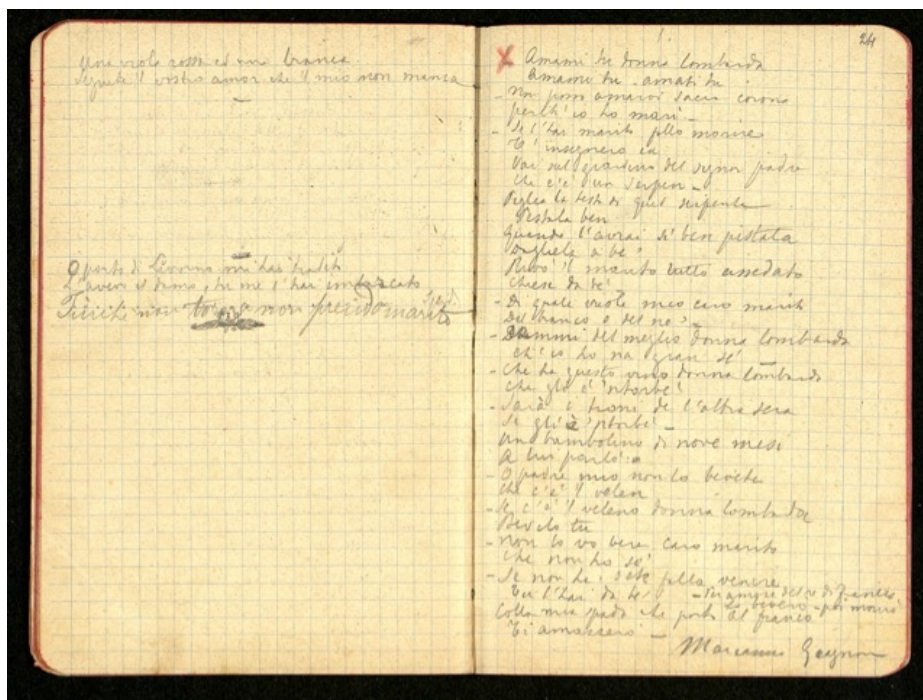 una viola rossa ed una bianca
seguite il vostro amor che 'l mio non manca
O porto di Livorno m'hai tradito
L'avevo il damo, tu me l'hai imbarcato
Finché non torna non prendo marito
24
1.
X Amami tu donna lombarda
amami tu - amati tu
- Non posso amarvi sacra corona
perché io ho marì -
- Se l'hai marito fallo morire
T'insegnerò
Vai nel giardino del signor padre
che c'è un serpen -
Piglia la testa di quel serpente
Pestala ben
Quando l'avrai sì ben pestata
dagliela a be'
Arrivò il marito tutto assetato
chiese da be'
- Di quale vuole mio caro marito
Del bianco o del ne' -
- Dammi del meglio donna lombarda
ch'io ho na gran se' -
- Che ha questo vino donna lombarda
che gli è 'ntorbe'
- Sarà i troni de l'altra sera
Se gli è 'ntorbè -
Un bambolino di nove mesi
A lui parlò
- O padre mio non lo bevete
che c'è 'l velen
- Se c'è 'l veleno donna lombarda
Bevilo tu
- Non lo vo' bere caro marito
che non ho se'
- Se non ha' sete falla venire
Tu l'hai da be' - Per amore del re di Francia
lo beverò - poi morirò
Colla mia spada che porto al fianco
Ti amazzerò -